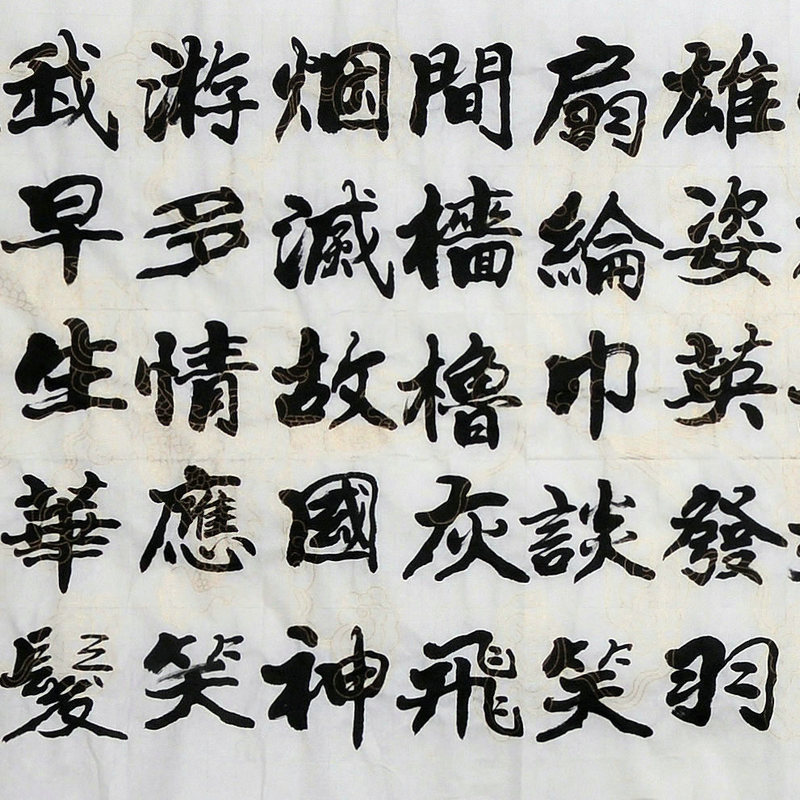 雄姿英發羽
扇綸巾談笑
間檣櫓灰飛
烟滅故國神
游多情應笑
我早生華髮